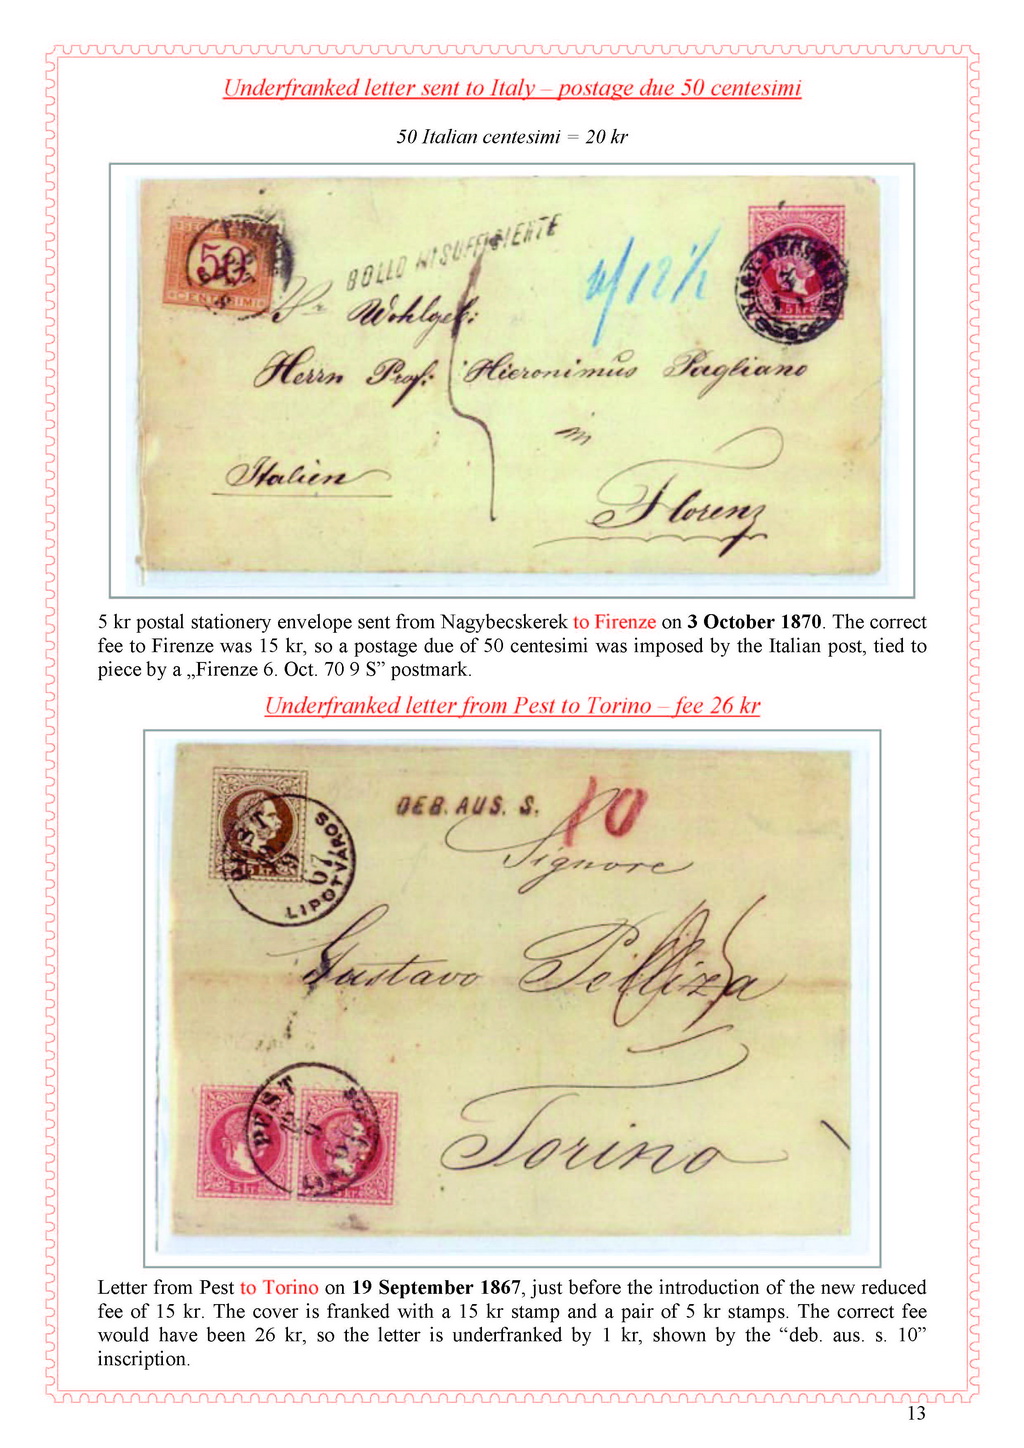 Underfranked letter sent to Italy – postage due 50 centesimi
50 Italian centesimi = 20 kr
BOLLO INSUFFISIENTE
50
CENTESIMI
5 kr
Wohlgeb:
Herrn Prof. Hieronimus Pagliano
in
Italien
Florenz
5 kr postal stationery envelope sent from Nagybecskerek to Firenze on 3 October 1870. The correct
fee to Firenze was 15 kr, so a postage due of 50 centesimi was imposed by the Italian post, tied to
piece by a „Firenze 6. Oct. 70 9 S” postmark.
Underfranked letter from Pest to Torino – fee 26 kr
DEB. AUS. S. 10
PEST
LIPOTVÁROS
15 kr.
Signore
Gustavo Pelliza
PEST
5 kr. 5 kr.
Torino
Letter from Pest to Torino on 19 September 1867, just before the introduction of the new reduced
fee of 15 kr. The cover is franked with a 15 kr stamp and a pair of 5 kr stamps. The correct fee
would have been 26 kr, so the letter is underfranked by 1 kr, shown by the “deb. aus. s. 10”
inscription.
13